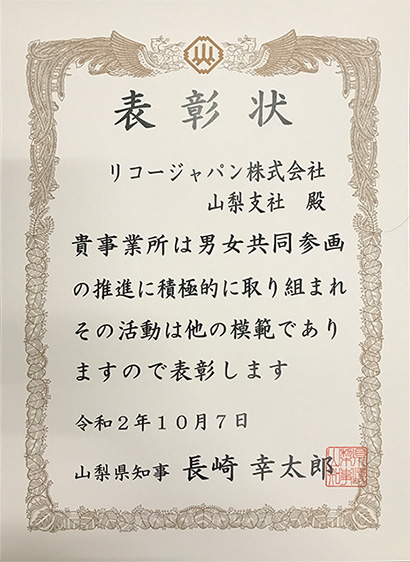 表彰状
リコージャパン株式会社
山梨支社 殿
貴事業所は男女共同参画
の推進に積極的に取り組まれ
その活動は他の模範であり
ますので表彰します
令和2年10月7日
山梨県知事 長崎 幸太郎